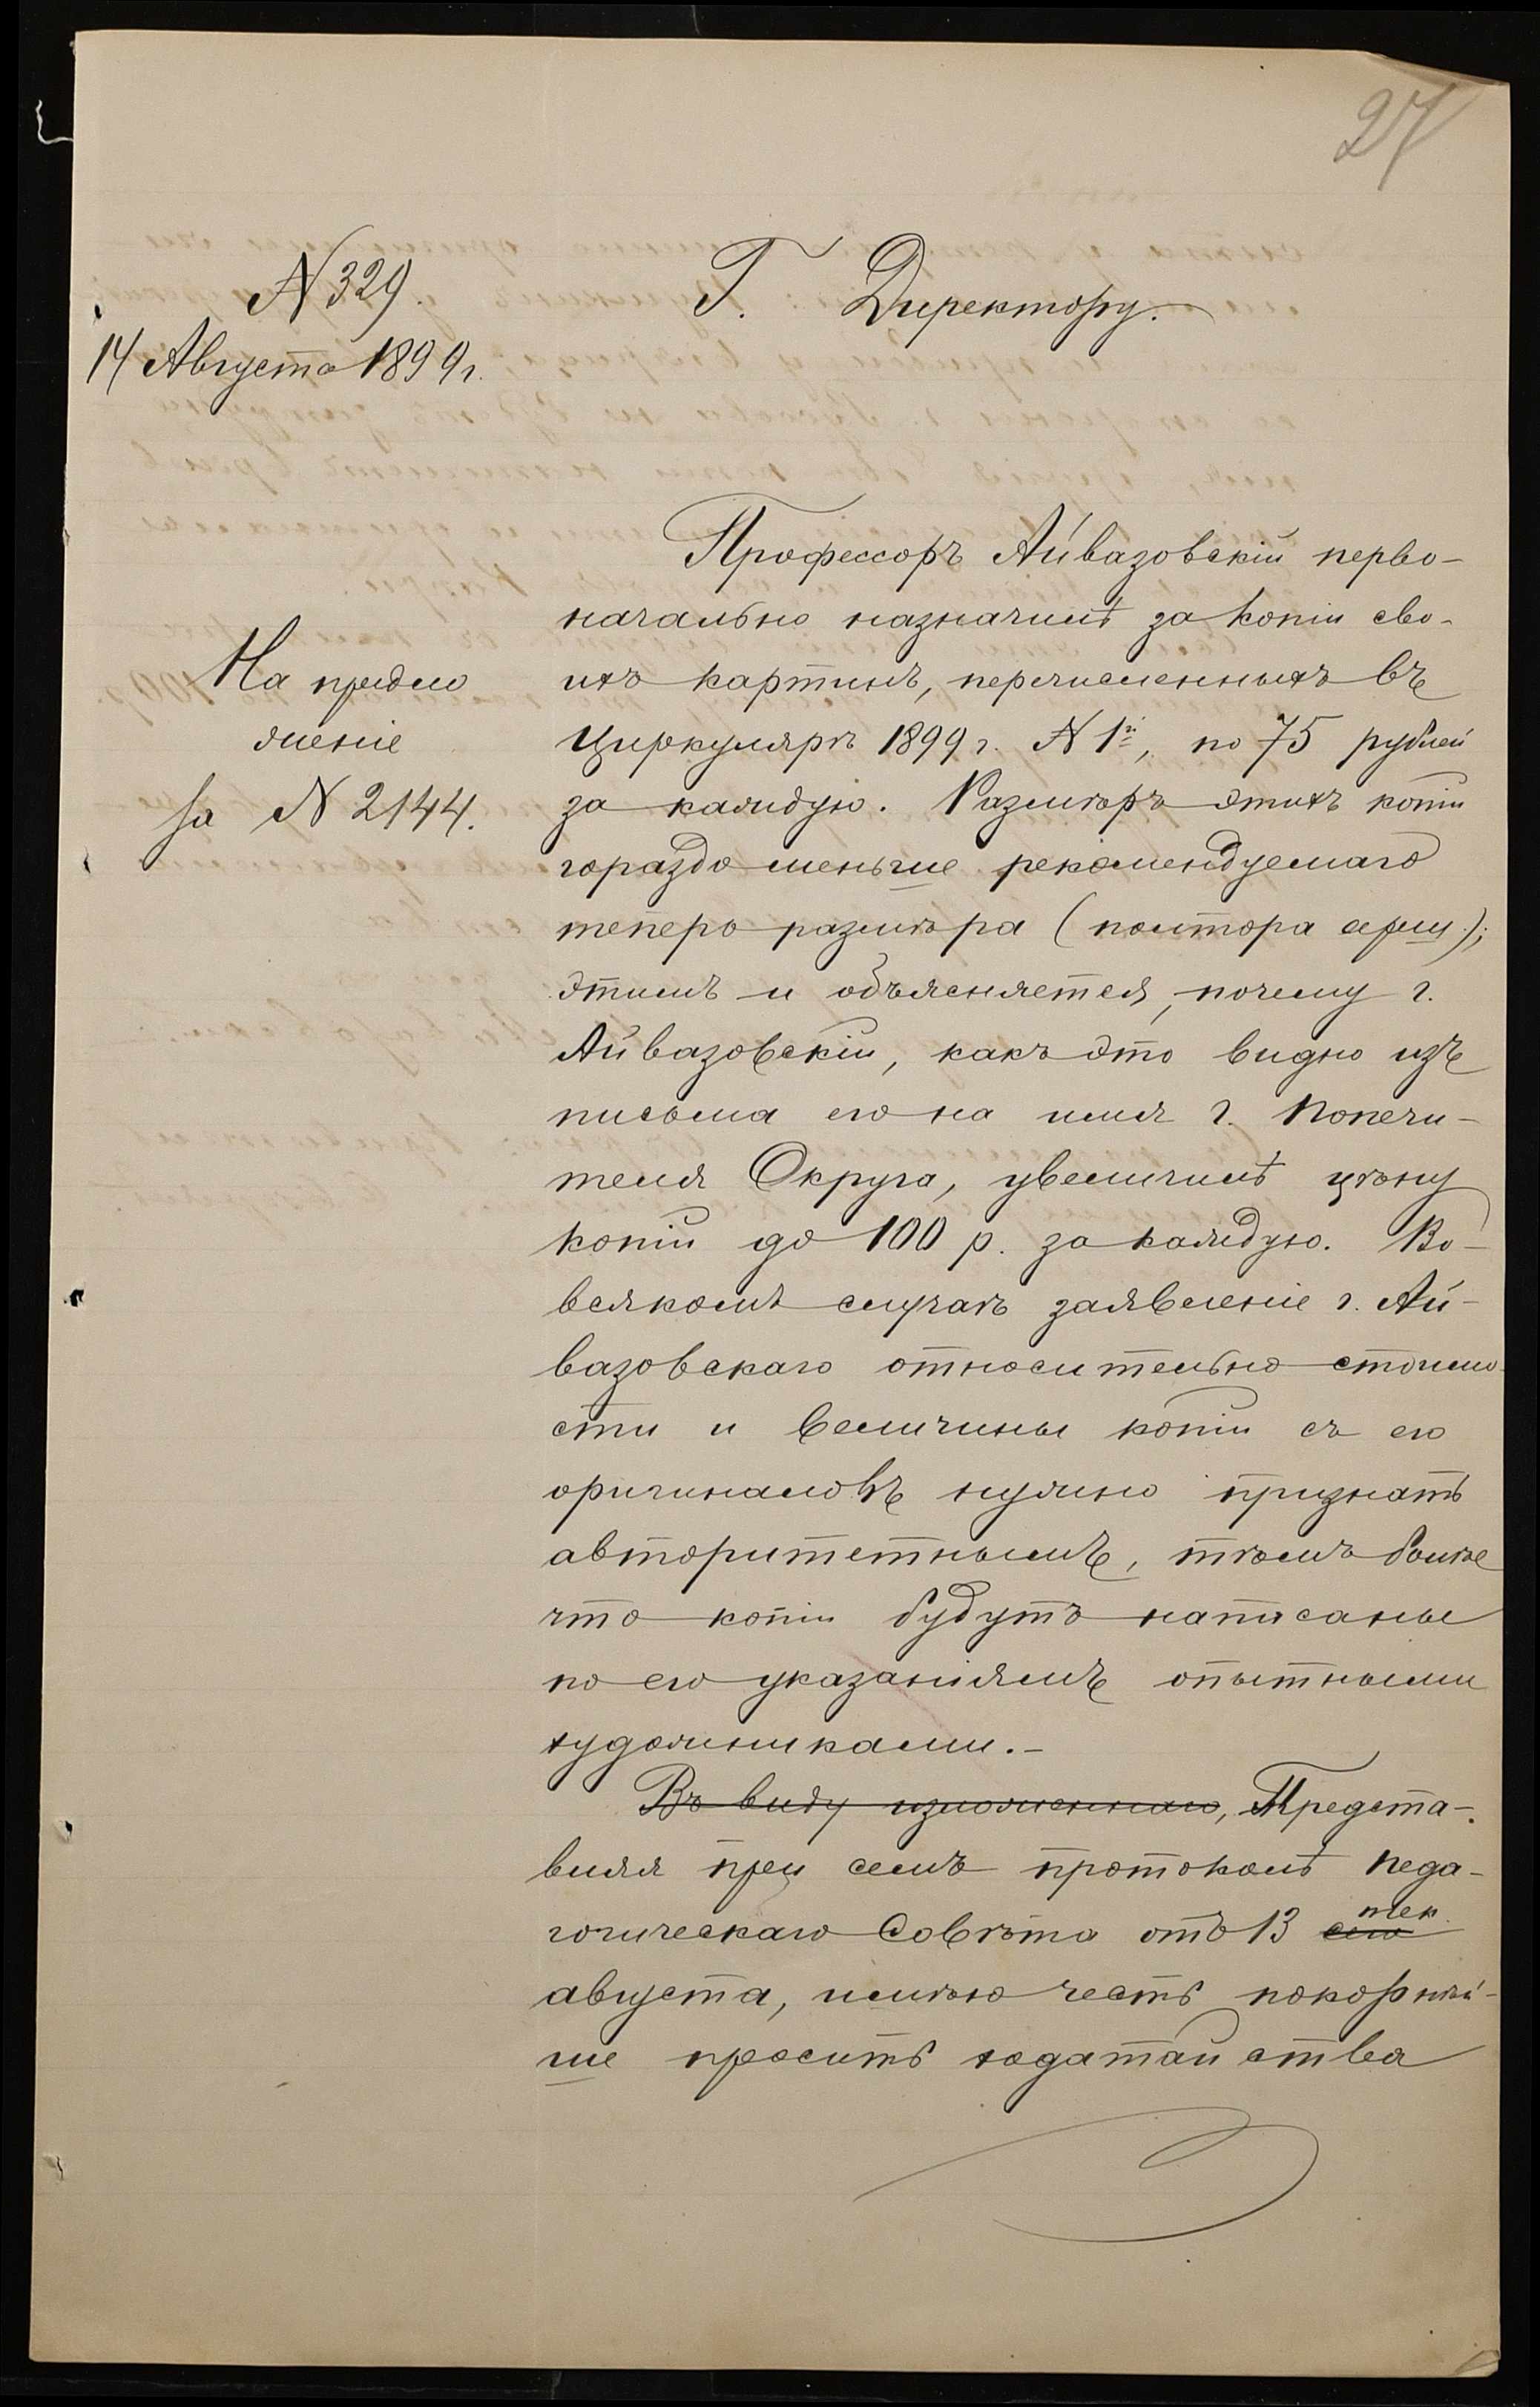 27
№ 329.
14 Августа 1899 г.
Г. Директору.
На предло
женіе
за № 2144.
Профессоръ Айвазовскій перво-
начально назначилъ за копіи сво-
ихъ картинъ, перечисленныхъ въ
циркулярѣ 1899 г. № 1й, по 75 рублей
за каждую. Размѣръ этихъ копій
гораздо меньше рекомендуемаго
теперь размѣра (полтора арш.);
этимъ и объясняется, почему г.
Айвазовскій, какъ это видно изъ
письма его на имя г. Попечи-
теля Округа, увеличилъ цѣну
копій до 100 р. за каждую. Во-
всякомъ случаѣ заявленіе г. Ай-
вазовскаго относительно стоимо
сти и величины копій съ его
оригиналовъ нужно признать
авторитетнымъ, тѣмъ болѣе
что копіи будутъ написаны
по его указаніямъ опытными
художниками.-
Въ виду изложеннаго, Предста-
вляя при семъ протоколъ педа-
гогическаго Совѣта отъ 13 сего тек.
августа, имѣю честь покорнѣй-
ше просить ходатайства